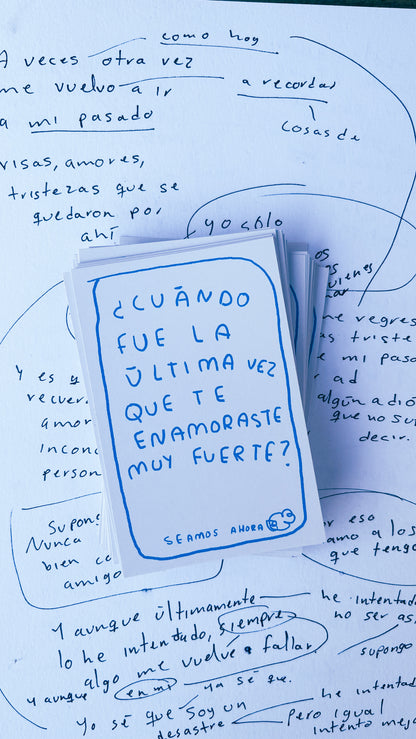 como hoy
A veces otra vez
me vuelvo a ir
a recordar
a mi pasado
cosas de
risas, amores,
tristezas que se
quedaron por
ahí
yo sólo
¿CUÁNDO
FUE LA
ÚLTIMA VEZ
QUE TE
ENAMORASTE
MUY FUERTE?
SEAMOS AHORA
me regres
mi pasa
algún adió
que no su
decir.
Y es
recuer
amor
incon
person
Supon
Nunca
bien
amigo
por eso
amo a los
que teng
Y aunque últimamente
he intentad
no ser as
lo he intentado, siempre
algo me vuelve a fallar
supongo
Y aunque en mi
ya sé que
Yo sé que soy un
desastre
he intentad
pero igual
intento mejo